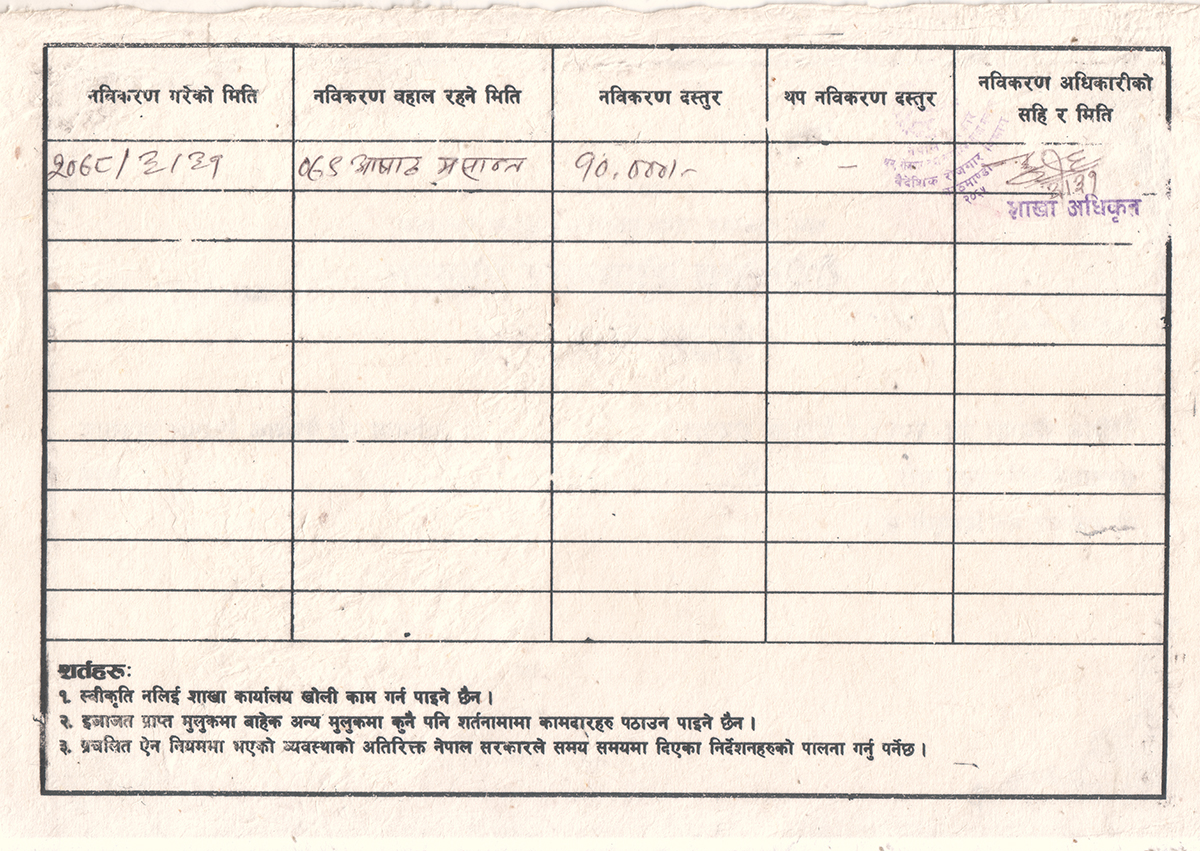 नविकरण गरेको मिति
नविकरण वहाल रहने मिति
नविकरण दस्तुर
थप नविकरण दस्तुर
नविकरण अधिकारीको
सहि र मिति
२०६८/३/३१
०६९ आषाढ मसान्त
१०,०००।-
-
वैदेशिक रोजगार
३/३१
शाखा अधिकृत
शर्तहरुः
१. स्वीकृति नलिई शाखा कार्यालय खोली काम गर्न पाइने छैन।
२. इजाजत प्राप्त मुलुकमा बाहेक अन्य मुलुकमा कुनै पनि शर्तनामामा कामदारहरु पठाउन पाइने छैन।
३. प्रचलित ऐन नियममा भएको व्यवस्थाको अतिरिक्त नेपाल सरकारले समय समयमा दिएका निर्देशनहरुको पालना गर्नु पर्नेछ।